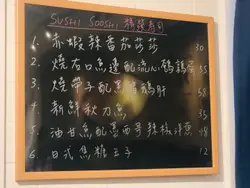 SUSHI SOOSHI 精選壽司
1. 赤蝦辣番茄莎莎 30
2. 燒右口魚邊配流心鵪鶉蛋 35
3. 燒帶子配鵝肝 58
4. 新鮮秋刀魚 35
5. 油甘魚配墨西哥辣椒 48
6. 日式焦糖玉子 12